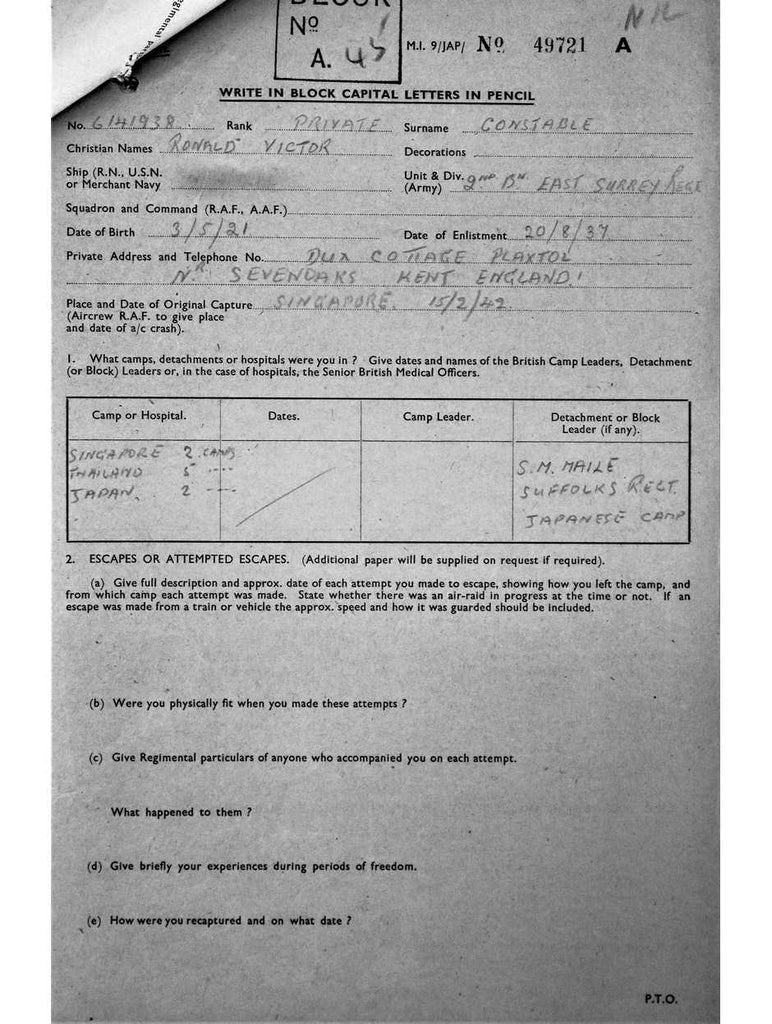 BLOCK
Nº
A. 45
NIL
M.I. 9/JAP/ Nº 49721 A
WRITE IN BLOCK CAPITAL LETTERS IN PENCIL
No. 6141938 Rank PRIVATE Surname CONSTABLE
Christian Names RONALD VICTOR Decorations
Ship (R.N., U.S.N. or Merchant Navy
Unit & Div. (Army) 2ND BN. EAST SURREY REGT
Squadron and Command (R.A.F., A.A.F.)
Date of Birth 3/5/21 Date of Enlistment 20/8/37
Private Address and Telephone No. DUX COTTAGE PLAXTOL
NR SEVENOAKS KENT ENGLAND
Place and Date of Original Capture SINGAPORE. 15/2/42
(Aircrew R.A.F. to give place
and date of a/c crash).
1. What camps, detachments or hospitals were you in ? Give dates and names of the British Camp Leaders, Detachment
(or Block) Leaders or, in the case of hospitals, the Senior British Medical Officers.
Camp or Hospital. Dates. Camp Leader. Detachment or Block
Leader (if any).
SINGAPORE 2 CAMPS
THAILAND 5 "
JAPAN. 2 "
S.M. MAILE
SUFFOLKS REGT.
JAPANESE CAMP
2. ESCAPES OR ATTEMPTED ESCAPES. (Additional paper will be supplied on request if required).
(a) Give full description and approx. date of each attempt you made to escape, showing how you left the camp, and
from which camp each attempt was made. State whether there was an air-raid in progress at the time or not. If an
escape was made from a train or vehicle the approx. speed and how it was guarded should be included.
(b) Were you physically fit when you made these attempts ?
(c) Give Regimental particulars of anyone who accompanied you on each attempt.
What happened to them ?
(d) Give briefly your experiences during periods of freedom.
(e) How were you recaptured and on what date ?
P.T.O.